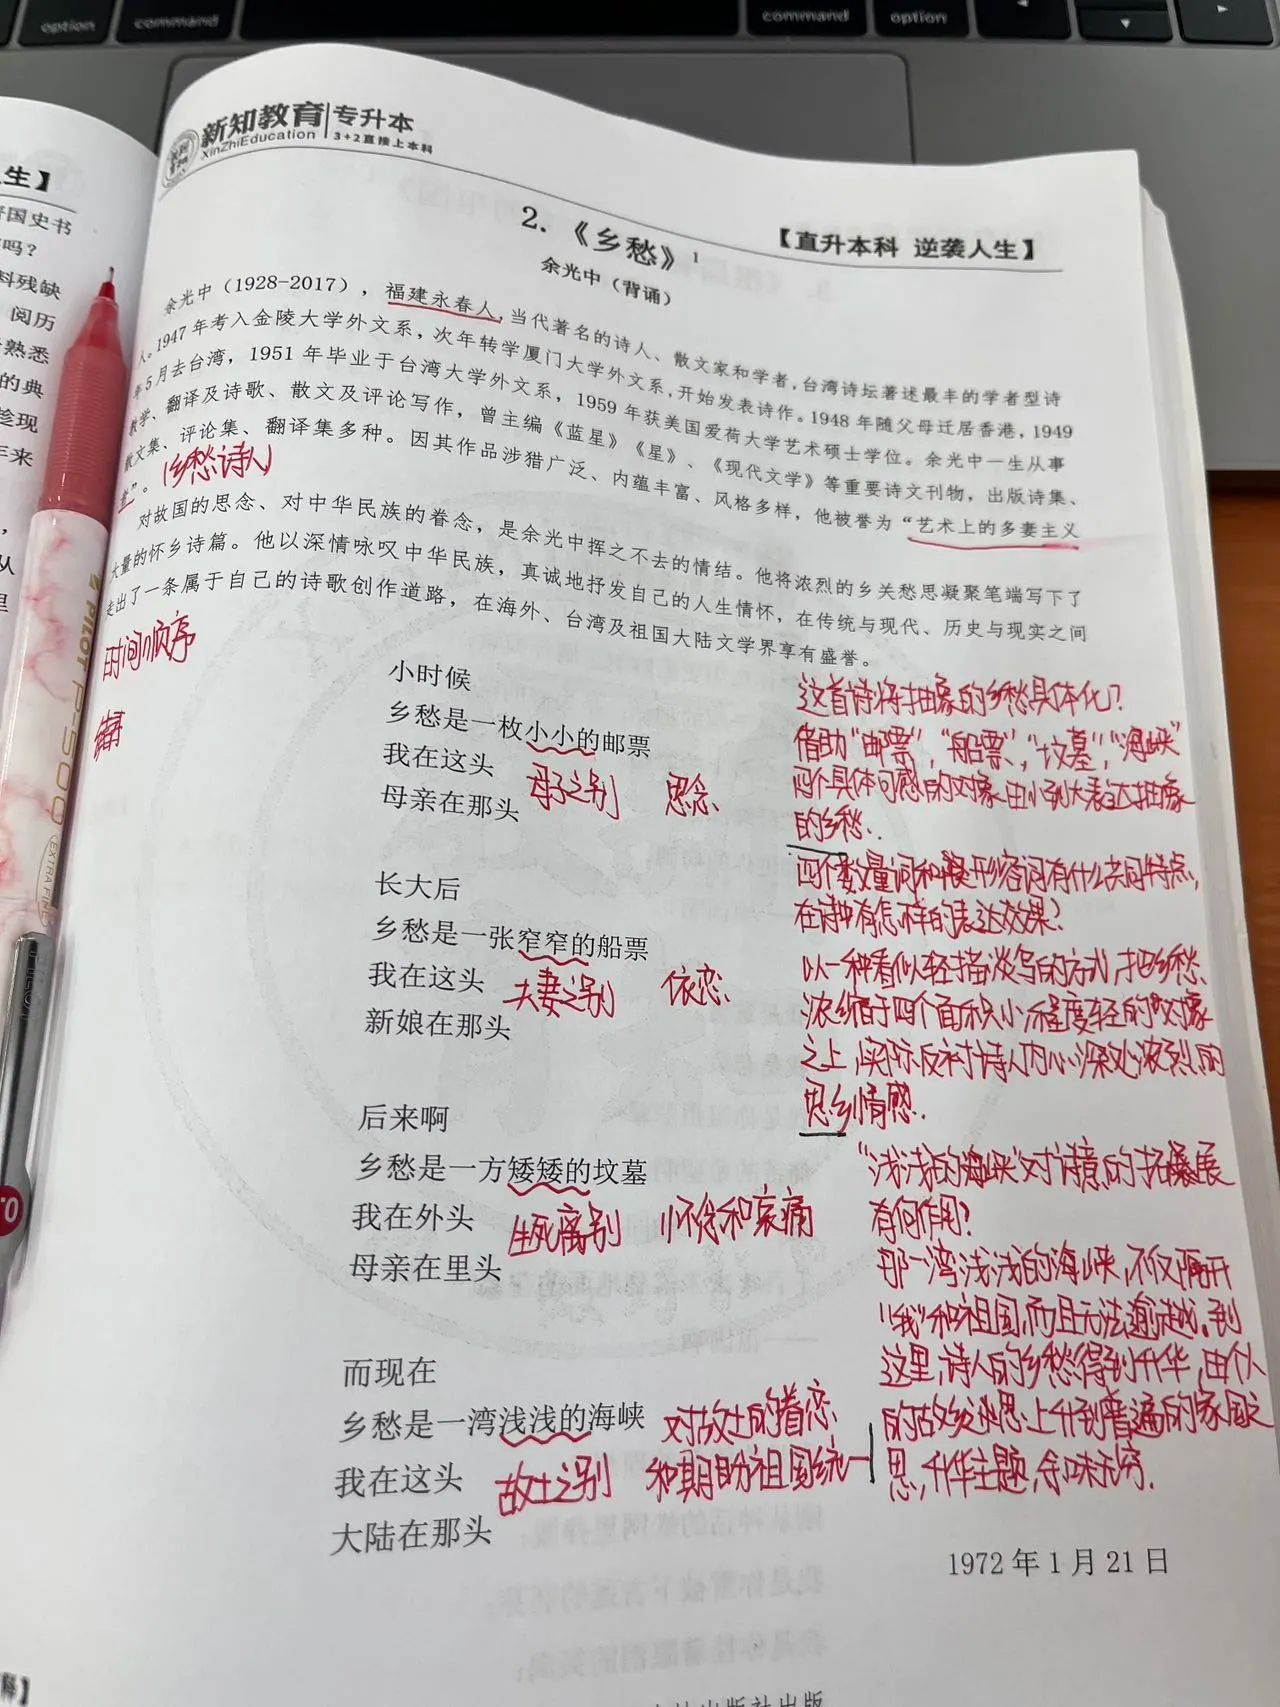 option
command
command
option
生】
国史书
吗？
料残缺
阅历
熟悉
的典
趁现
年来
从
里
新知教育 专升本
XinZhiEducation 3+2直接上本科
【直升本科 逆袭人生】
2.《乡愁》1
余光中（背诵）
余光中（1928-2017），福建永春人，当代著名的诗人、散文家和学者，台湾诗坛著述最丰的学者型诗
人。1947年考入金陵大学外文系，次年转学厦门大学外文系，开始发表诗作。1948年随父母迁居香港，1949
年5月去台湾，1951年毕业于台湾大学外文系，1959年获美国爱荷大学艺术硕士学位。余光中一生从事
教学、翻译及诗歌、散文及评论写作，曾主编《蓝星》《星》、《现代文学》等重要诗文刊物，出版诗集、
散文集、评论集、翻译集多种。因其作品涉猎广泛、内蕴丰富、风格多样，他被誉为“艺术上的多妻主义
者”。（乡愁诗人）
对故国的思念、对中华民族的眷念，是余光中挥之不去的情结。他将浓烈的乡关愁思凝聚笔端写下了
大量的怀乡诗篇。他以深情咏叹中华民族，真诚地抒发自己的人生情怀，在传统与现代、历史与现实之间
走出了一条属于自己的诗歌创作道路，在海外、台湾及祖国大陆文学界享有盛誉。
时间顺序
小时候
乡愁是一枚小小的邮票
我在这头
母亲在那头 母子之别 思念
长大后
乡愁是一张窄窄的船票
我在这头 夫妻之别 依恋
新娘在那头
后来啊
乡愁是一方矮矮的坟墓
我在外头 生死离别 怀念和哀痛
母亲在里头
而现在
乡愁是一湾浅浅的海峡 对故土的眷恋
我在这头 故土之别 和期盼祖国统一
大陆在那头
这首诗将抽象的乡愁具体化？
借助“邮票”，“船票”，“坟墓”，“海峡”
四个具体可感的对象由小到大表达抽象
的乡愁.
四个数量词和叠形容词有什么共同特点，
在诗中有怎样的表达效果？
以一种看似轻描淡写的方式，把乡愁
浓缩于四个面积小程度轻的对象
之上，实际反衬诗人内心深处浓烈的
思乡情感.
“浅浅的海峡”对诗意的拓展
有何作用？
那一湾浅浅的海峡，不仅隔开
“我”和祖国，而且无法逾越。到
这里，诗人的乡愁得到升华，由个人
的故乡之思上升到普遍的家国之
思，升华主题，余味无穷.
1972年1月21日
PILOT P-500
EXTRA FINE
出版社出版